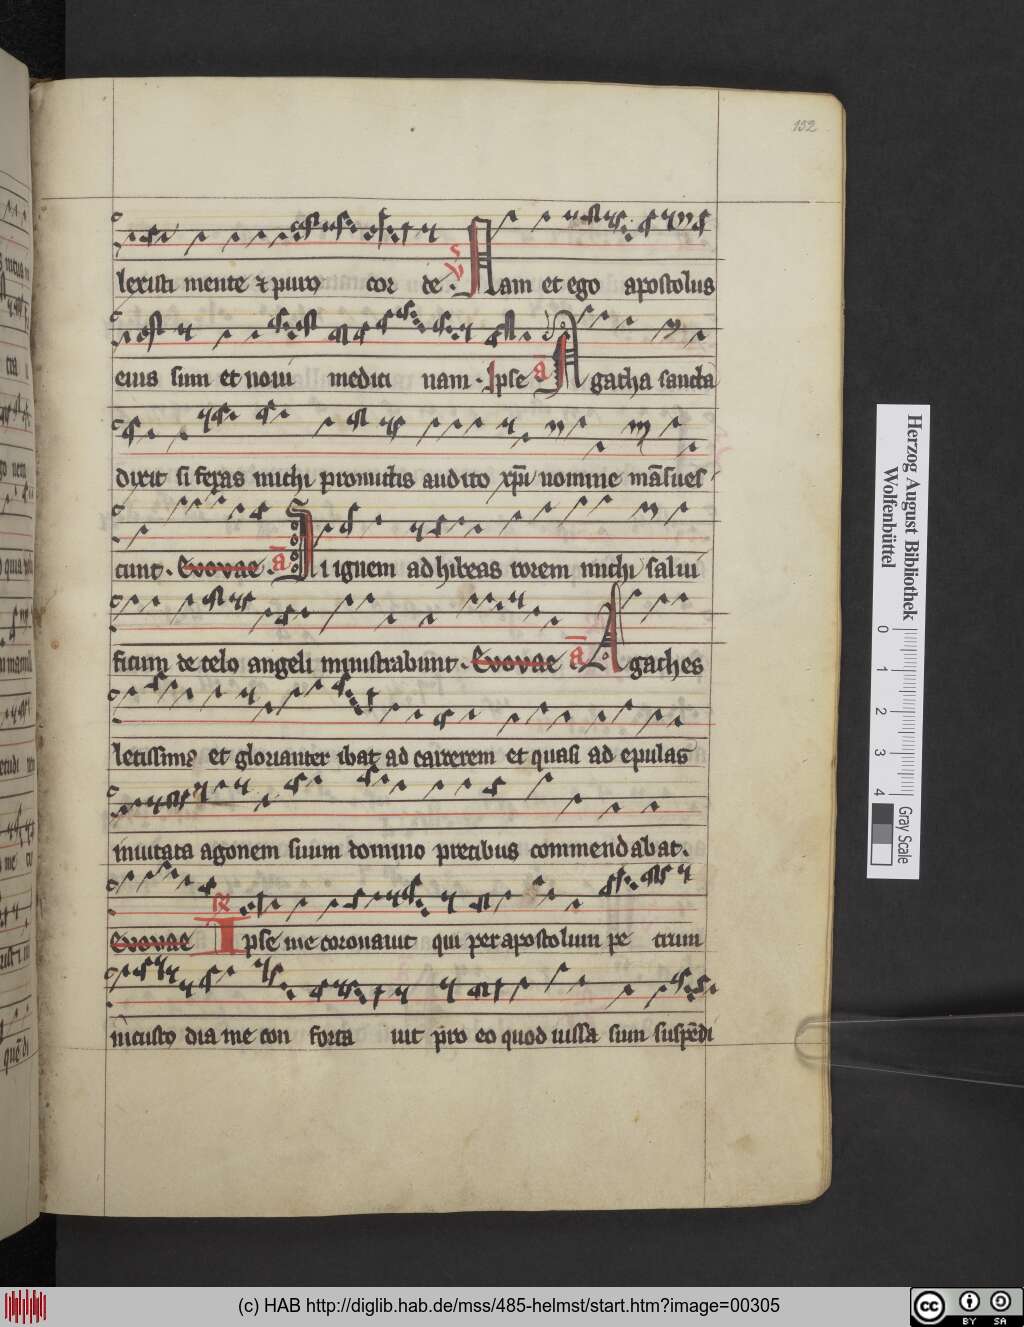 152
lexisti mente ⁊ puro cor de. V Nam et ego apostolus
eius sum et noui medici nam. Ipse a Agatha sancta
dixit si feras michi promittis audito xp̄i nomine māsues
cunt. Evovae. a Si ignem adhibeas rorem michi salui
ficum de celo angeli ministrabunt. Evovae a Agathes
letissime et glorianter ibat ad carcerem et quasi ad epulas
inuitata agonem suum domino precibus commendabat.
Evovae R Ipse me coronauit qui per apostolum pe trum
in custo dia me con forta uit pro eo quod iussa sum suspēdi
Herzog August Bibliothek
Wolfenbüttel
0 1 2 3 4
Gray Scale
(c) HAB http://diglib.hab.de/mss/485-helmst/start.htm?image=00305
cc BY SA